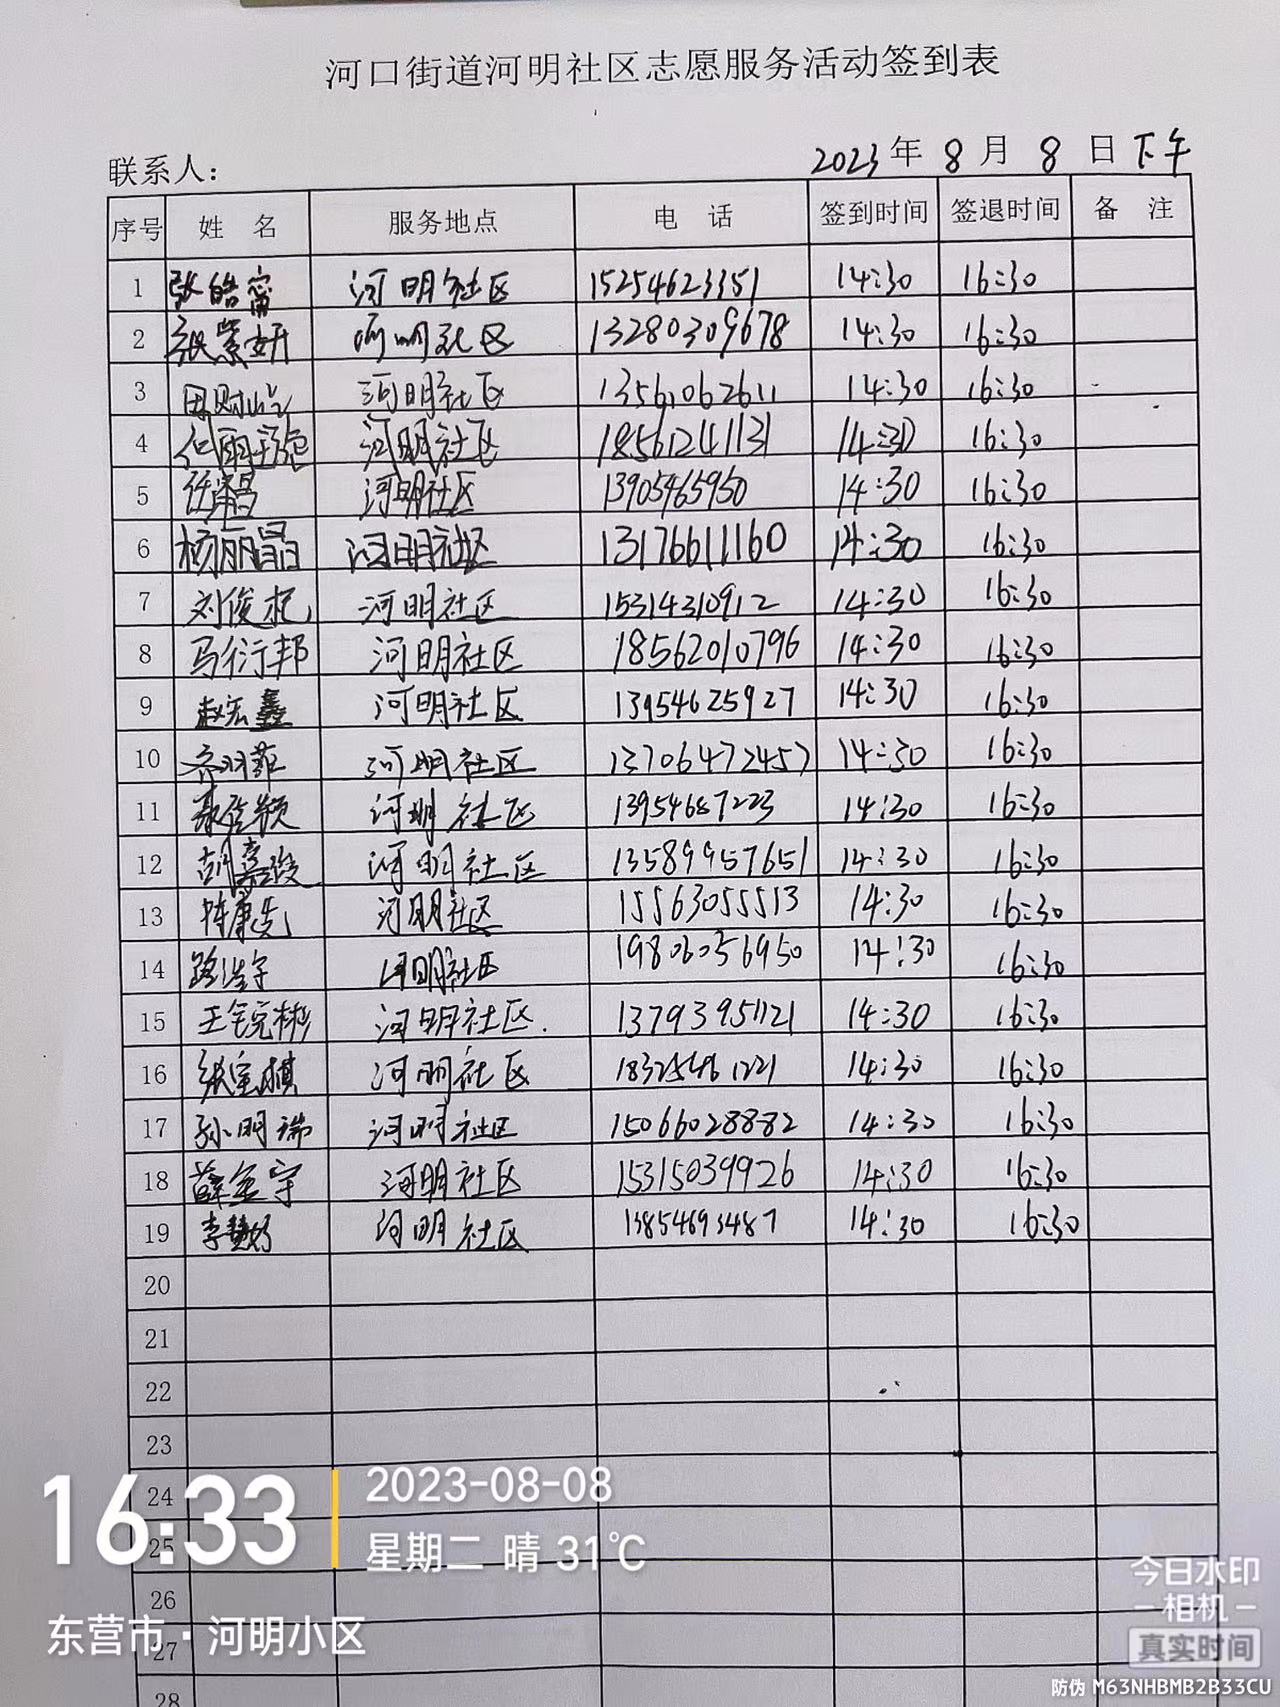 河口街道河明社区志愿服务活动签到表
联系人： 2023年 8月 8日 下午
序号 姓 名 服务地点 电 话 签到时间 签退时间 备 注
1 张皓甯 河明社区 15254623351 14:30 16:30
2 张紫妍 河明社区 13280309678 14:30 16:30
3 河明社区 13561062611 14:30 16:30
4 河明社区 18561241131 14:30 16:30
5 任泽昌 河明社区 13905465950 14:30 16:30
6 杨丽晶 河明社区 13176611160 14:30 16:30
7 刘俊杞 河明社区 15314310912 14:30 16:30
8 马衍邦 河明社区 18562010796 14:30 16:30
9 赵宏鑫 河明社区 13954625927 14:30 16:30
10 齐羽菲 河明社区 13706472457 14:30 16:30
11 河明社区 13954687223 14:30 16:30
12 胡嘉俊 河明社区 13589957651 14:30 16:30
13 河明社区 15563055513 14:30 16:30
14 路浩宇 河明社区 19806056950 14:30 16:30
15 王锐彬 河明社区. 13793951121 14:30 16:30
16 张宝棋 河明社区 18325461221 14:30 16:30
17 孙明瑞 河明社区 15066028882 14:30 16:30
18 薛金宇 河明社区 15315039926 14:30 16:30
19 李慧妤 河明社区 13854693487 14:30 16:30
20
21
22
23
24
25
26
27
28
16:33
2023-08-08
星期二 晴 31℃
东营市·河明小区
今日水印
相机
真实时间
防伪 M63NHBMB2B33CU